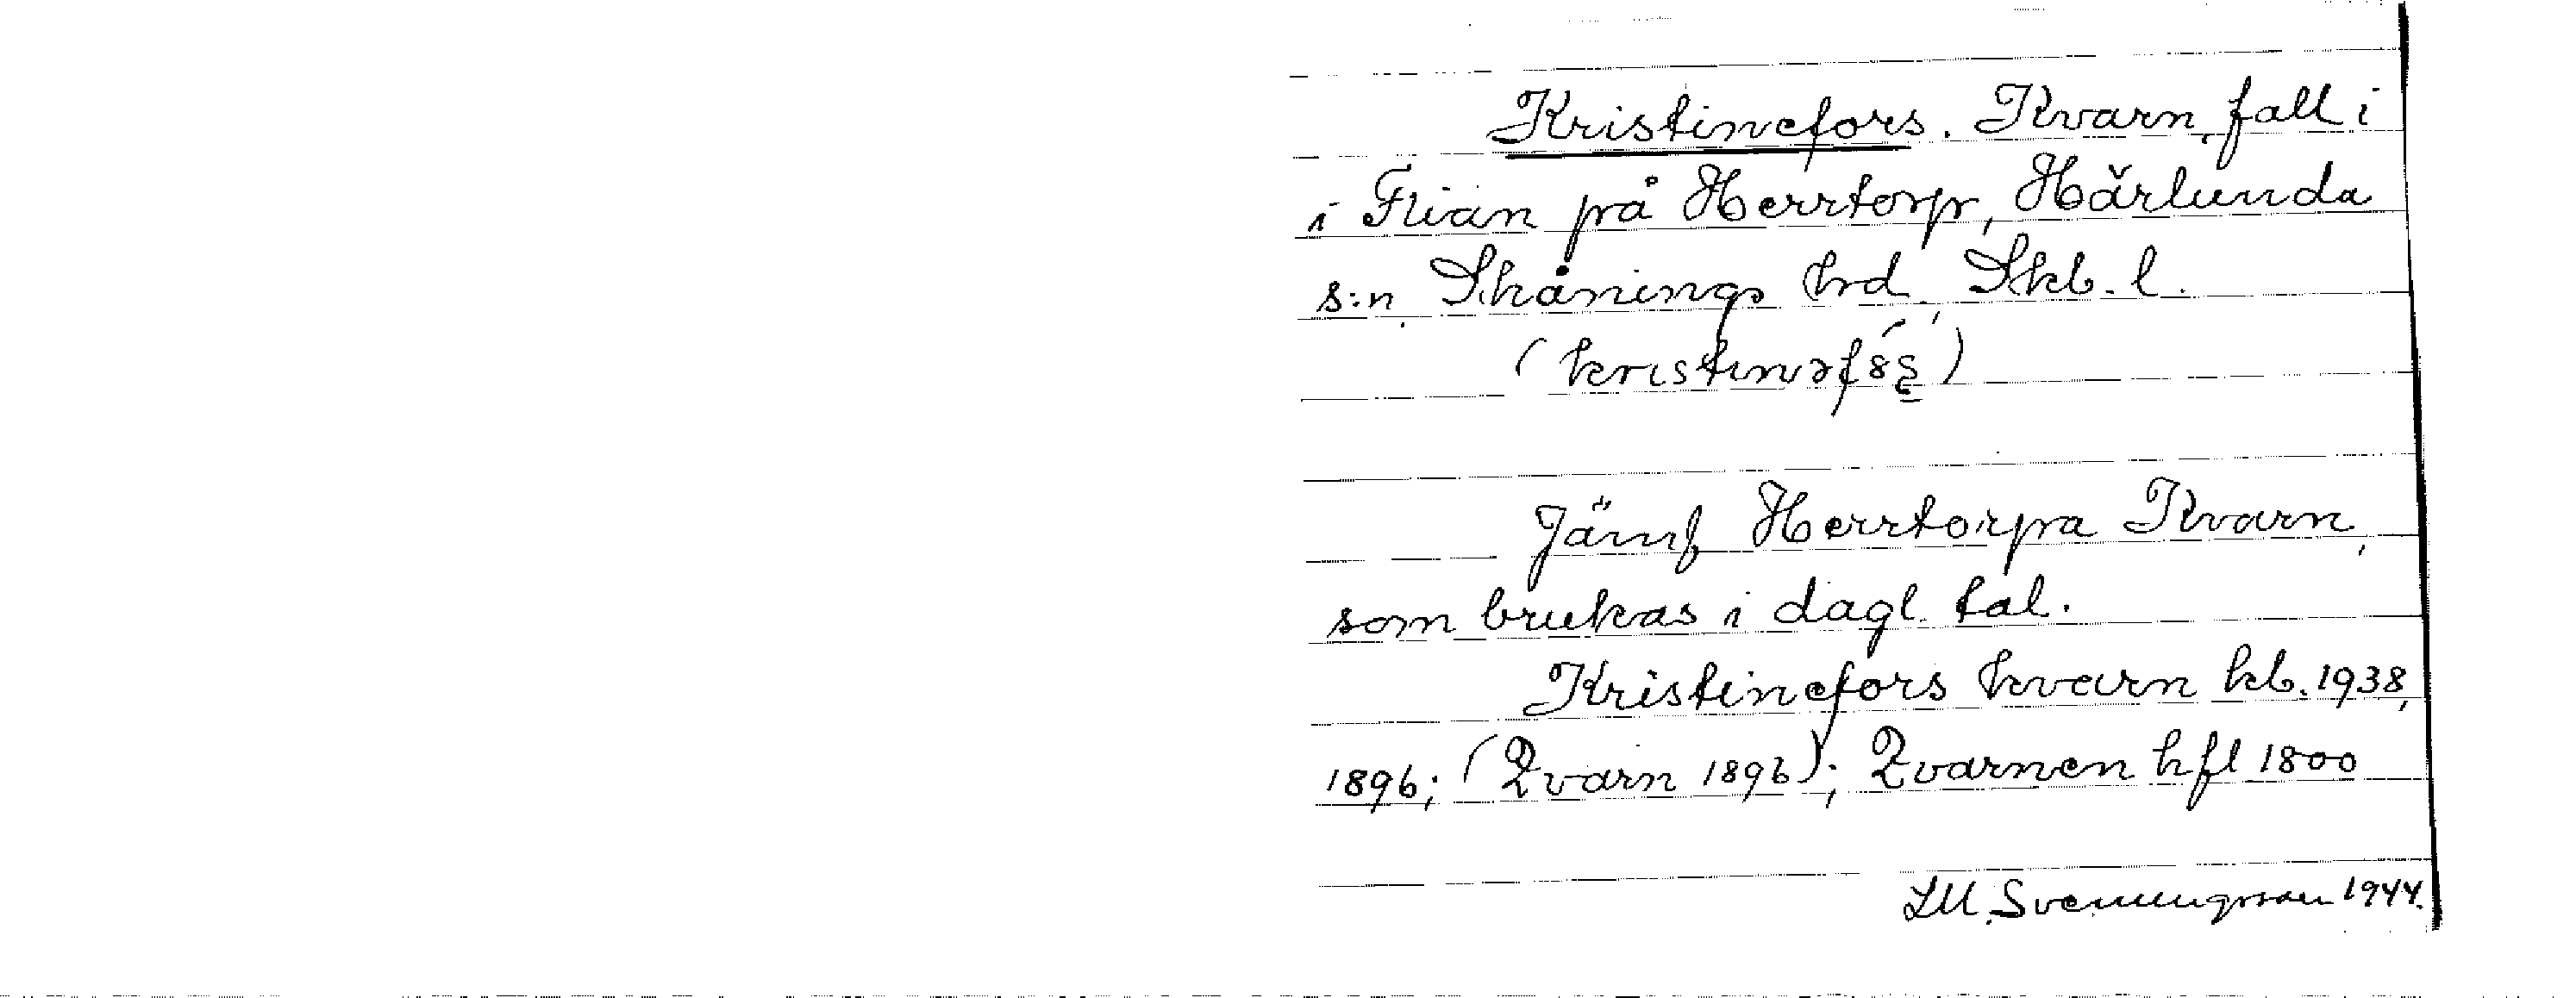 Kristinefors. Kvarn, fall i
i Flian på Herrtorp, Härlunda
s:n, Skånings hrd, Skb. l.
Jämf Herrtorpra Kvarn,
som brukas i dagl. tal.
Kristinefors kvarn kb. 1938,
1896; (Qvarn 1896); Qvarnen hfl 1800
LM. Svenungsson 1944.